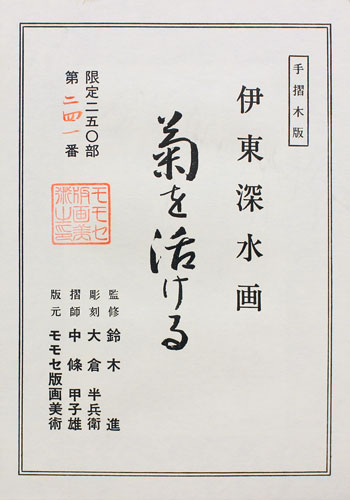 手摺木版
伊東深水画
菊を活ける
限定二五〇部
第二四一番
モモセ
版画美
術之印
監修 鈴木 進
彫刻 大倉 半兵衛
摺師 中條 甲子雄
版元 モモセ版画美術